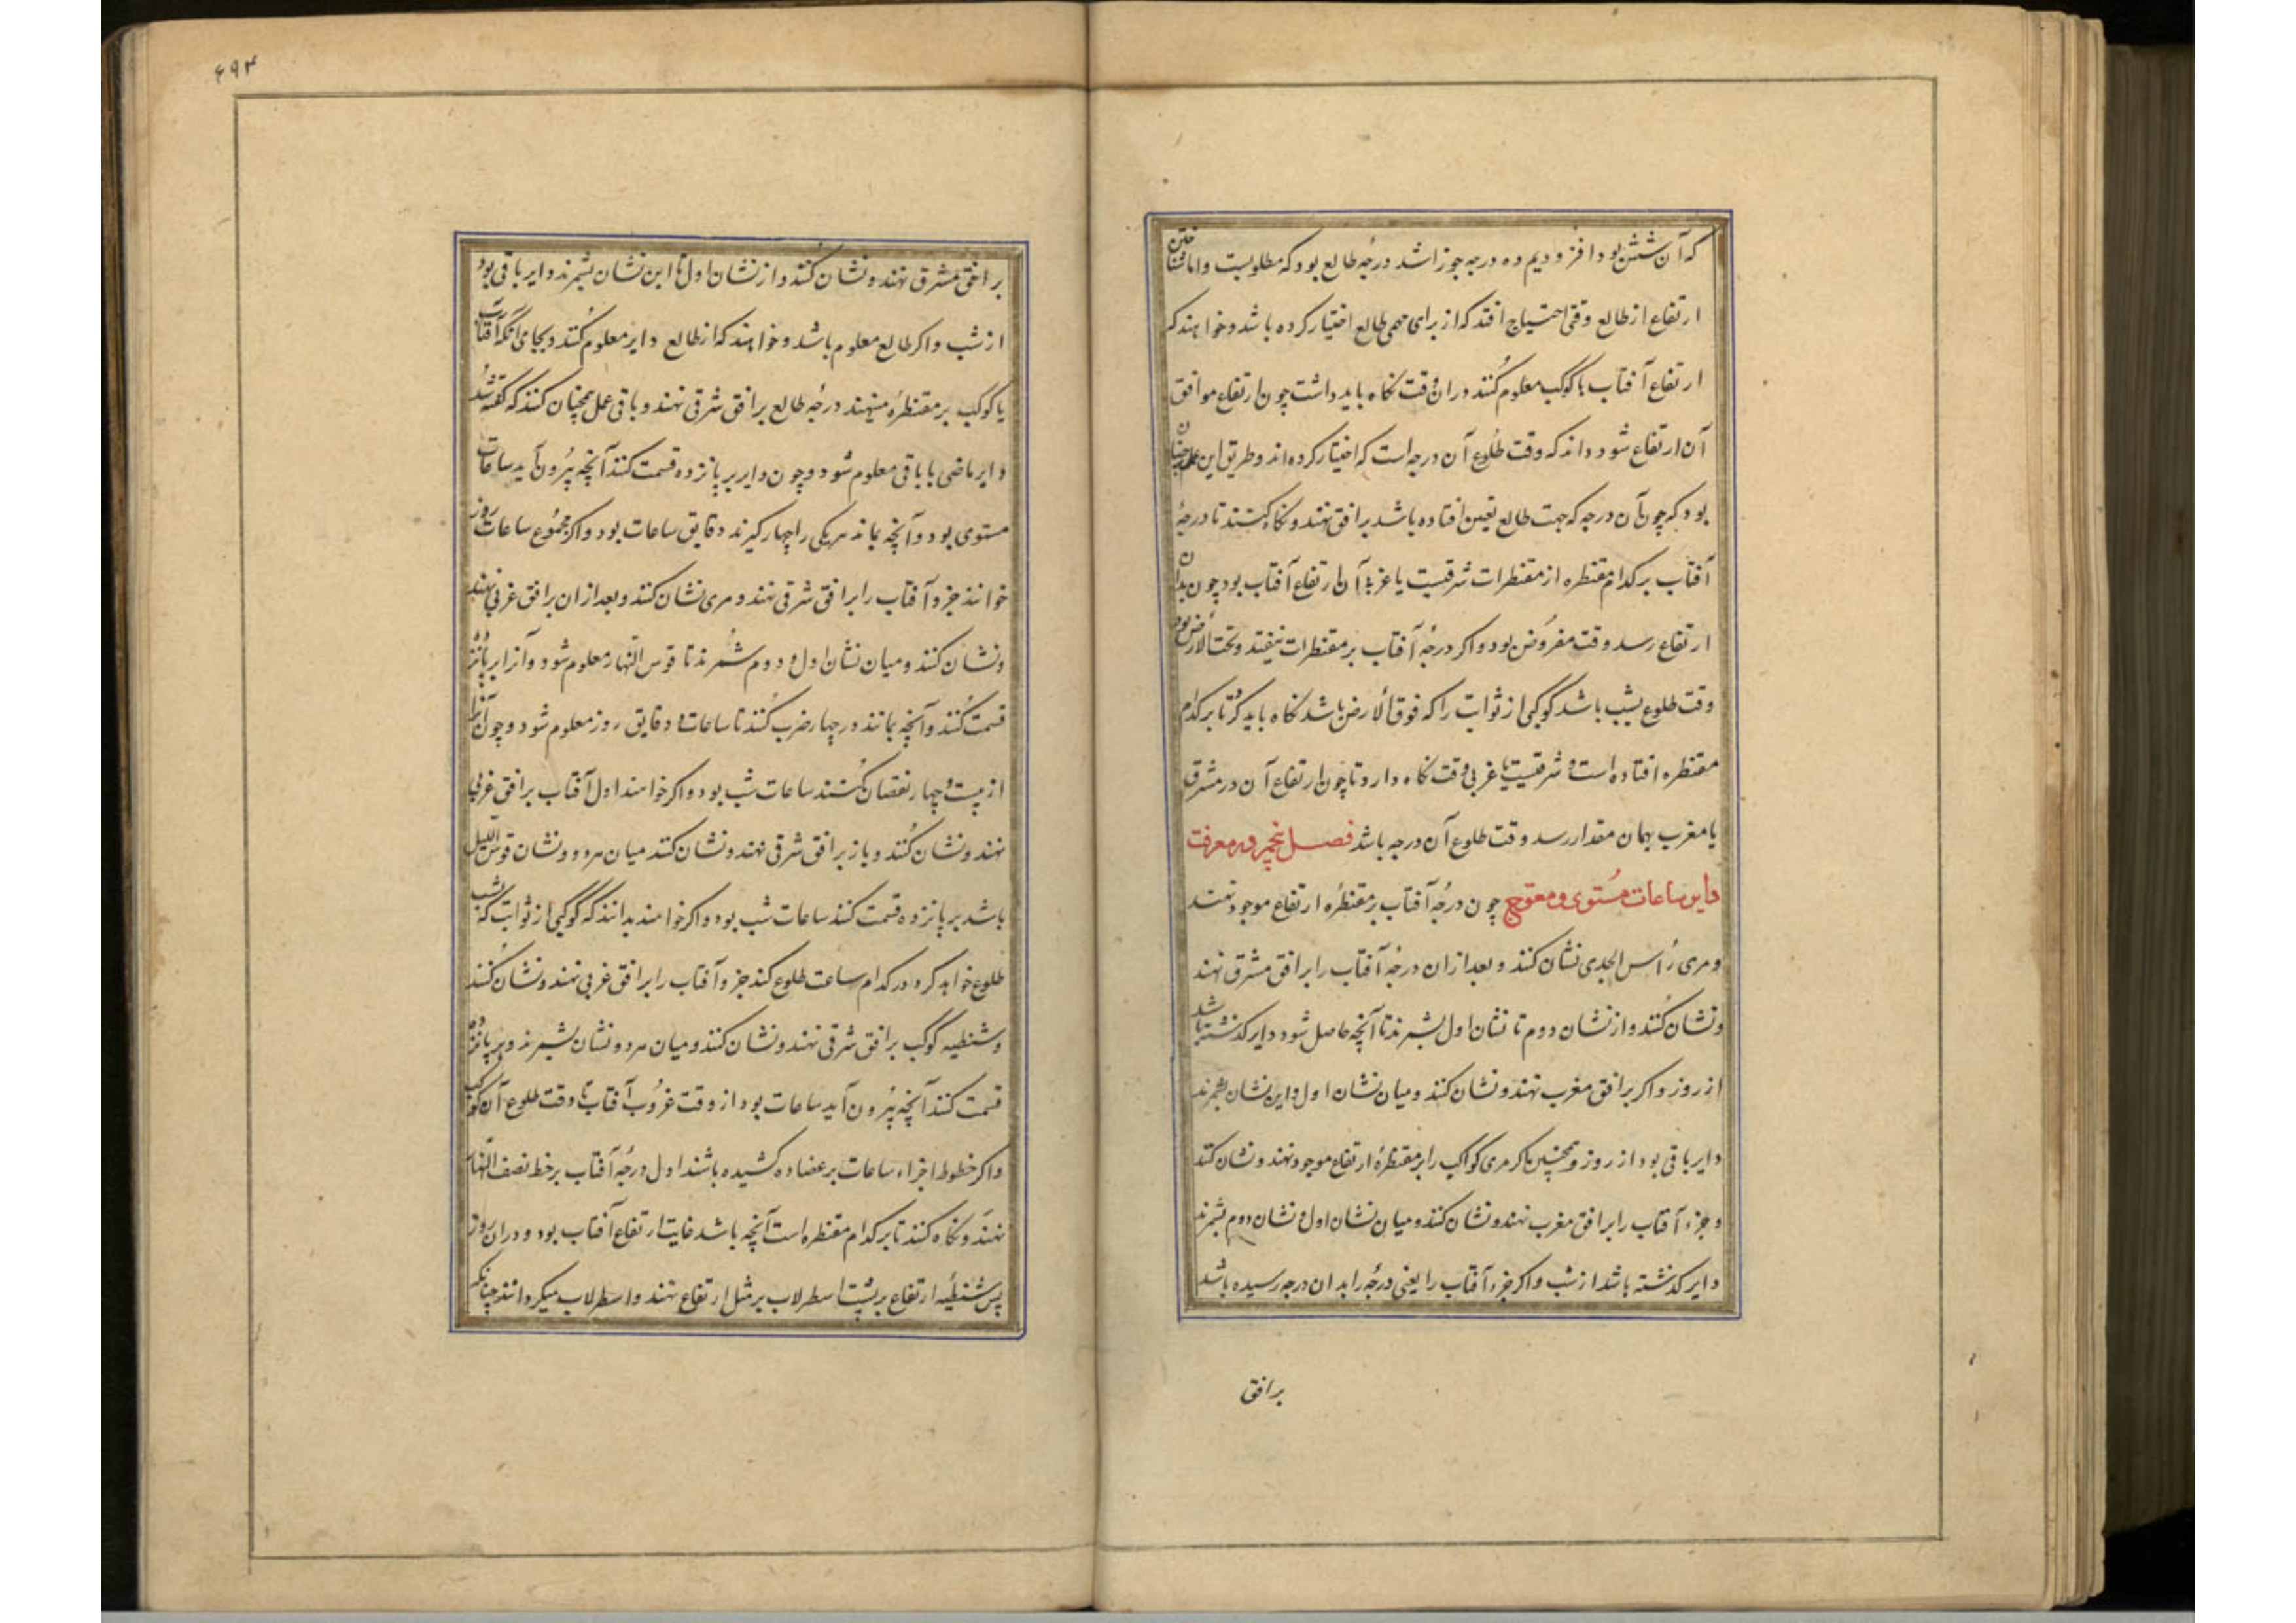 که آن شش بود افزودیم ده درجه جوزا شد درجهٔ طالع بود که مطلوبست واما شناختن
ارتفاع از طالع وقتی احتیاج افتد که از برای مهمی طالع اختیار کرده باشد وخواهند که
ارتفاع آفتاب یا کوکب معلوم کنند دران وقت نکاه باید داشت چون ارتفاع موافق
آن ارتفاع شود داند که وقت طلوع آن درجه است که اختیار کرده‌اند وطریق این عمل چنان
بود که چون آن درجه که جهت طالع تعیین افتاده باشد بر افق نهند ونکاه کنند تا درجهٔ
آفتاب بر کدام مقنطره از مقنطرات شرقیست یا غربی آن ارتفاع آفتاب بود چون بدان
ارتفاع رسد وقت مفروض بود واکر درجهٔ آفتاب بر مقنطرات نیفتد وتحت الارض بود
وقت طلوع بشب باشد کوکبی از ثوابت را که فوق الارض باشد نکاه باید کرد تا بر کدام
مقنطره افتاده است وشرقیست یا غربی وقت نکاه دارد تا چون ارتفاع آن در مشرق
یا مغرب بهمان مقدار رسد وقت طلوع آن درجه باشد فصل پنجم در معرفت
دایر ساعات مستوی و معوج چون درجهٔ آفتاب بر مقنطرهٔ ارتفاع موجود نهند
ومری رأس الجدی نشان کنند وبعد ازان درجهٔ آفتاب را بر افق مشرق نهند
ونشان کنند واز نشان دوم تا نشان اول بشمرند تا آنچه حاصل شود دایر کذشته باشد
از روز واکر بر افق مغرب نهند ونشان کنند ومیان نشان اول واین نشان بشمرند
دایر باقی بود از روز وهمچنین اکر مری کواکب را بر مقنطرهٔ ارتفاع موجود نهند ونشان کنند
وجزء آفتاب را بر افق مغرب نهند ونشان کنند ومیان نشان اول ونشان دوم بشمرند
دایر کذشته باشد از شب واکر جزء آفتاب را یعنی درجهٔ را بدان درجه رسیده باشد
بر افق
۶۹۴
بر افق مشرق نهند ونشان کنند واز نشان اول تا این نشان بشمرند دایر باقی بود
از شب واکر طالع معلوم باشد وخواهند که از طالع دایر معلوم کنند وبجای آنکه آفتاب
یا کوکب بر مقنطره مینهند درجهٔ طالع بر افق شرقی نهند وباقی عمل همچنان کنند که کفته شد
دایر ماضی یا باقی معلوم شود وچون دایر بر پانزده قسمت کنند آنچه بیرون آید ساعات
مستوی بود وآنچه بماند هریکی را چهار کیرند دقایق ساعات بود واکر مجموع ساعات روز
خوانند جزو آفتاب را بر افق شرقی نهند ومری نشان کنند وبعد ازان بر افق غربی نهند
ونشان کنند ومیان نشان اول ودوم شمرند تا قوس النهار معلوم شود وآنرا بر پانزده
قسمت کنند وآنچه بماند در چهار ضرب کنند تا ساعات ودقایق روز معلوم شود وچون آنرا
از بیست وچهار نقصان کنند ساعات شب بود واکر خواهند اول آفتاب بر افق غربی
نهند ونشان کنند وباز بر افق شرقی نهند ونشان کنند میان هر دو نشان قوس اللیل
باشد بر پانزده قسمت کنند ساعات شب بود واکر خواهند بدانند که کوکبی از ثوابت که بشب
طلوع خواهد کرد در کدام ساعت طلوع کند جزو آفتاب را بر افق غربی نهند ونشان کنند
وشنطیه کوکب بر افق شرقی نهند ونشان کنند ومیان هر دو نشان بشمرند وبر پانزده
قسمت کنند آنچه بیرون آید ساعات بود از وقت غروب آفتاب تا وقت طلوع آن کوکب
واکر خطوط اجزاء ساعات بر عضاده کشیده باشند اول درجهٔ آفتاب بر خط نصف النهار
نهند ونکاه کنند تا بر کدام مقنطره است آنچه باشد غایت ارتفاع آفتاب بود دران روز
پس شنطیهٔ ارتفاع بر پشت اسطرلاب بر مثل ارتفاع نهند واسطرلاب میکردانند چنانکه